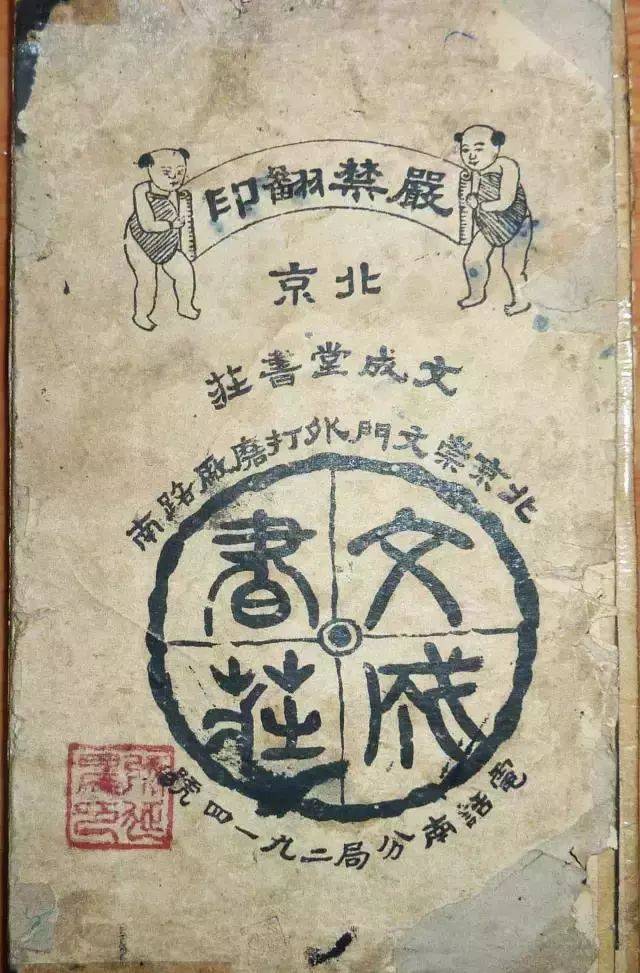 嚴禁翻印
北京
文成堂書莊
北京崇文門外打磨厰路南
文成
書莊
電話南分局二九一四號